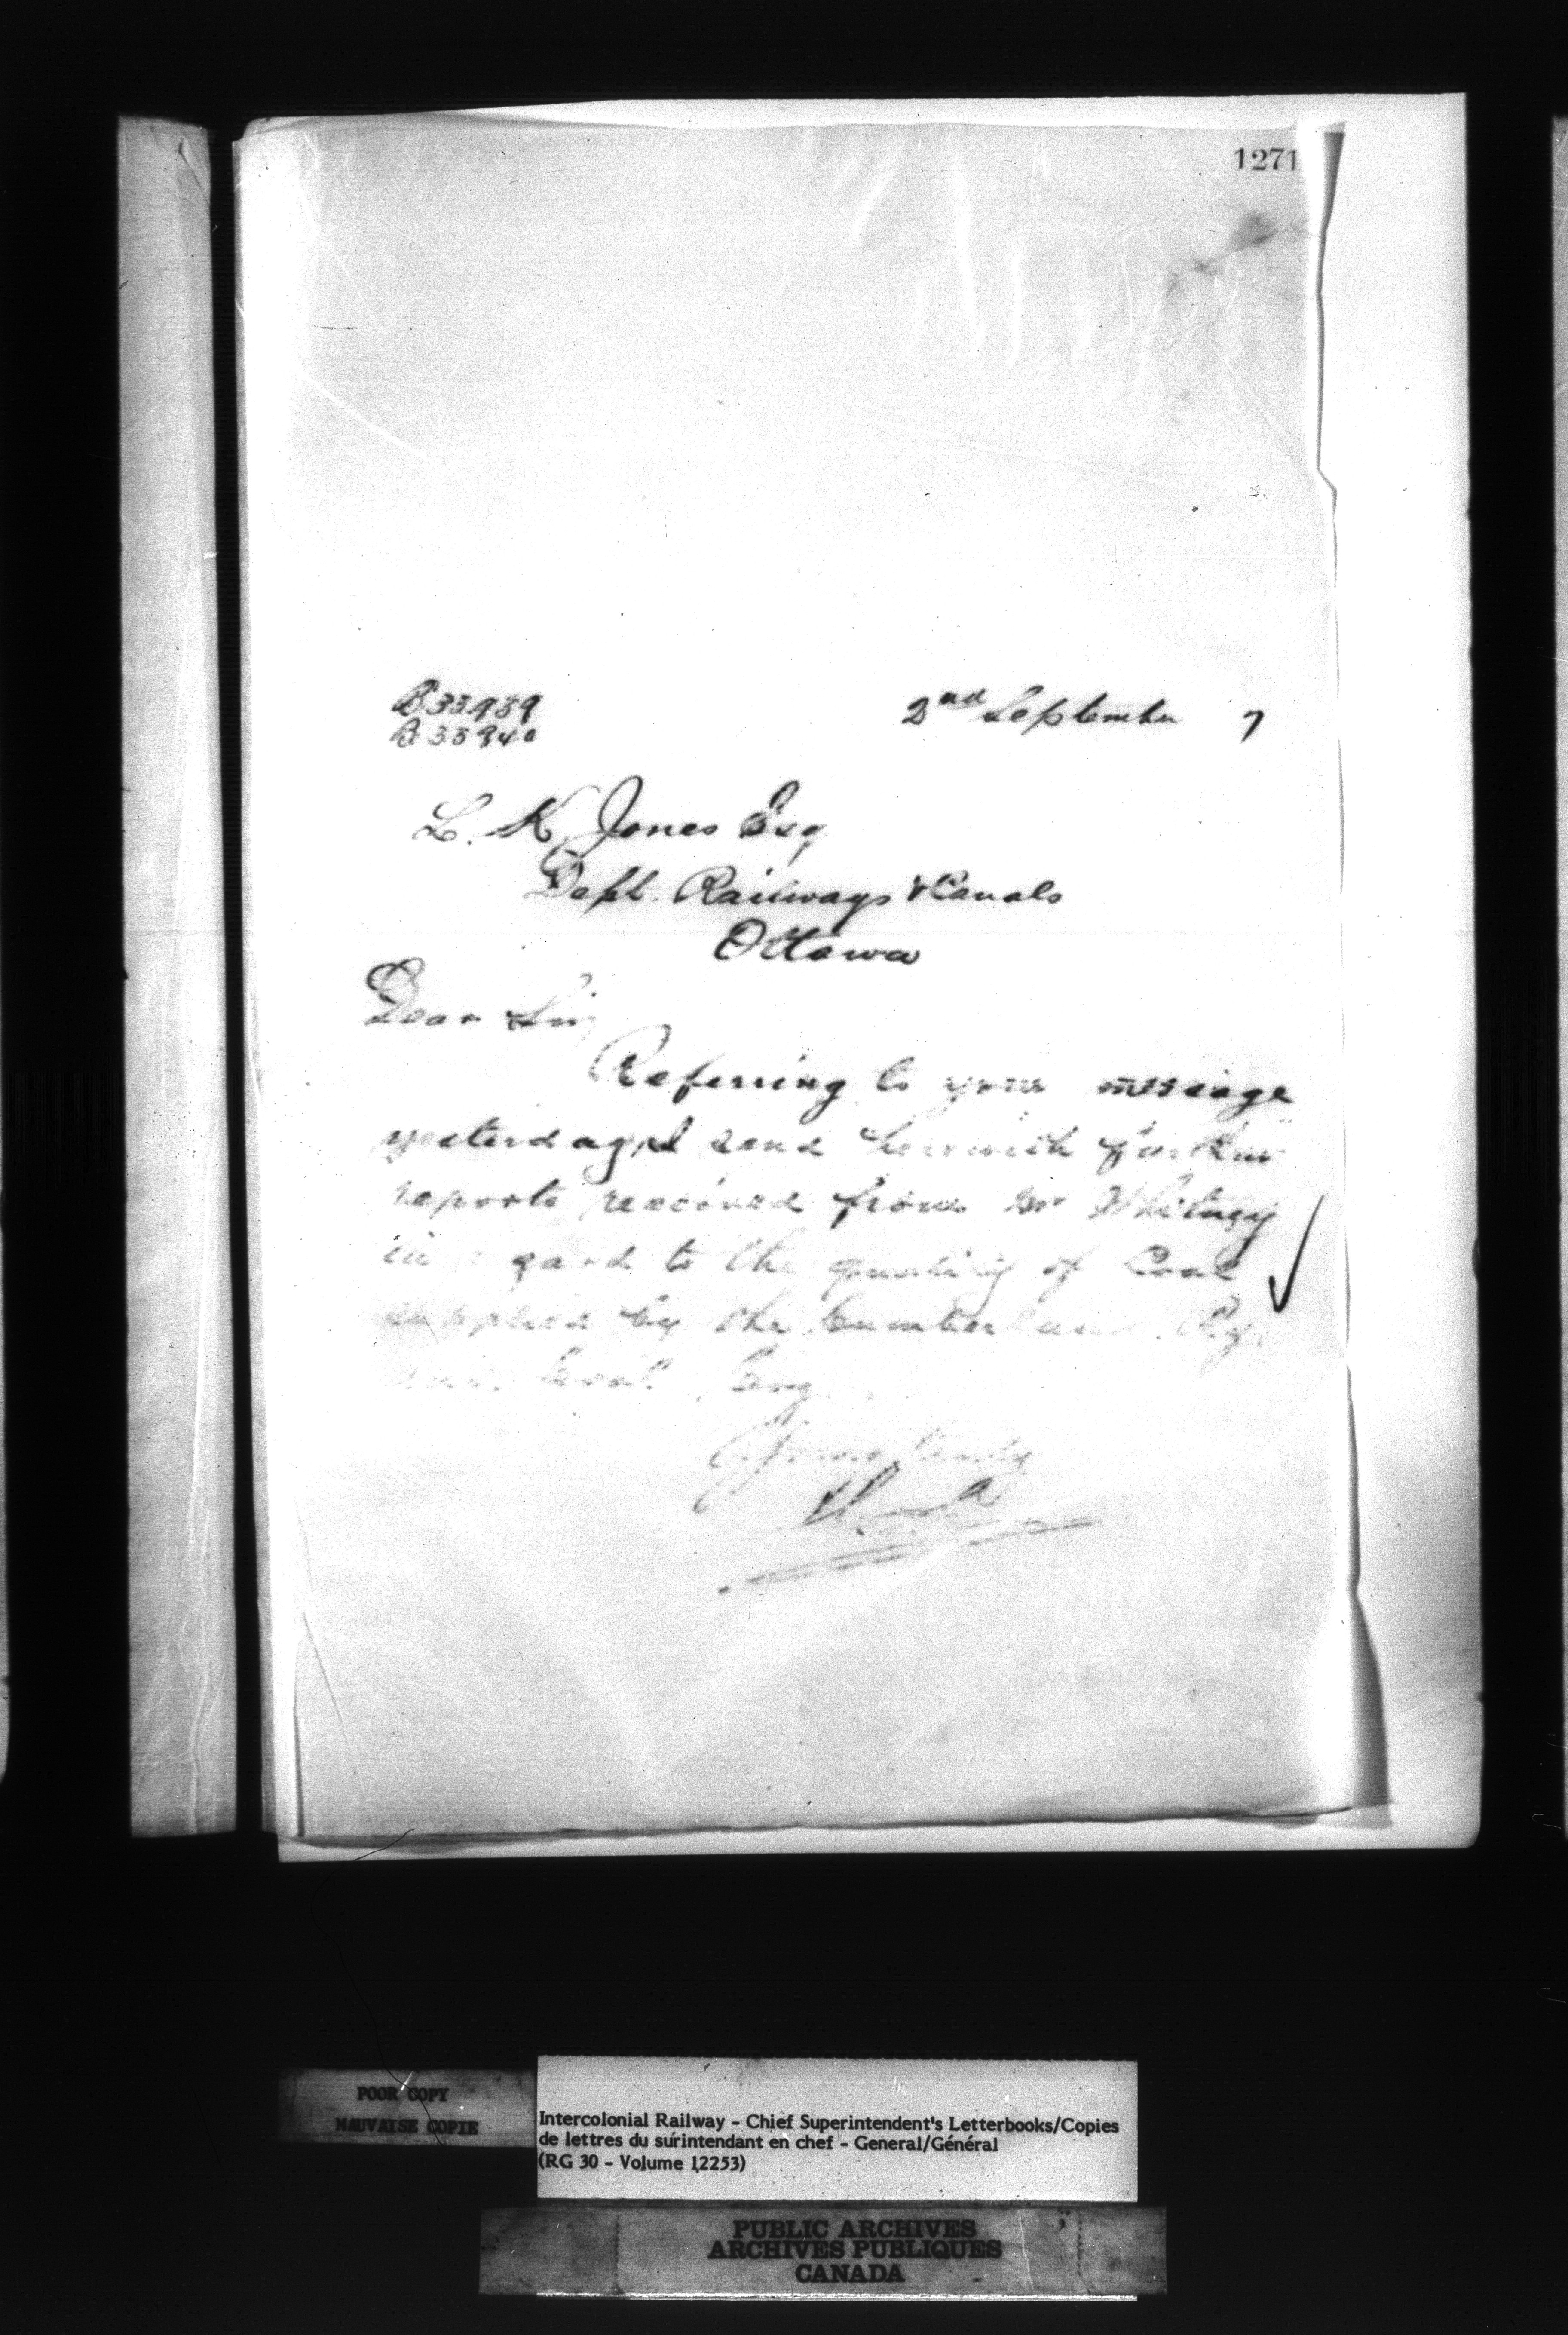 1271
B33939
B33940
2nd September 7
L. K. Jones Esq
Dept. Railways & Canals
Ottawa
Dear Sir
Referring to your message
yesterday I send herewith further
reports received from Mr Whitney
in regard to the quality of Coal
supplied by the Cumberland Ry.
and Coal Coy.
Yours truly
POOR COPY
MAUVAISE COPIE
Intercolonial Railway - Chief Superintendent's Letterbooks/Copies
de lettres du surintendant en chef - General/Général
(RG 30 - Volume 12253)
PUBLIC ARCHIVES
ARCHIVES PUBLIQUES
CANADA